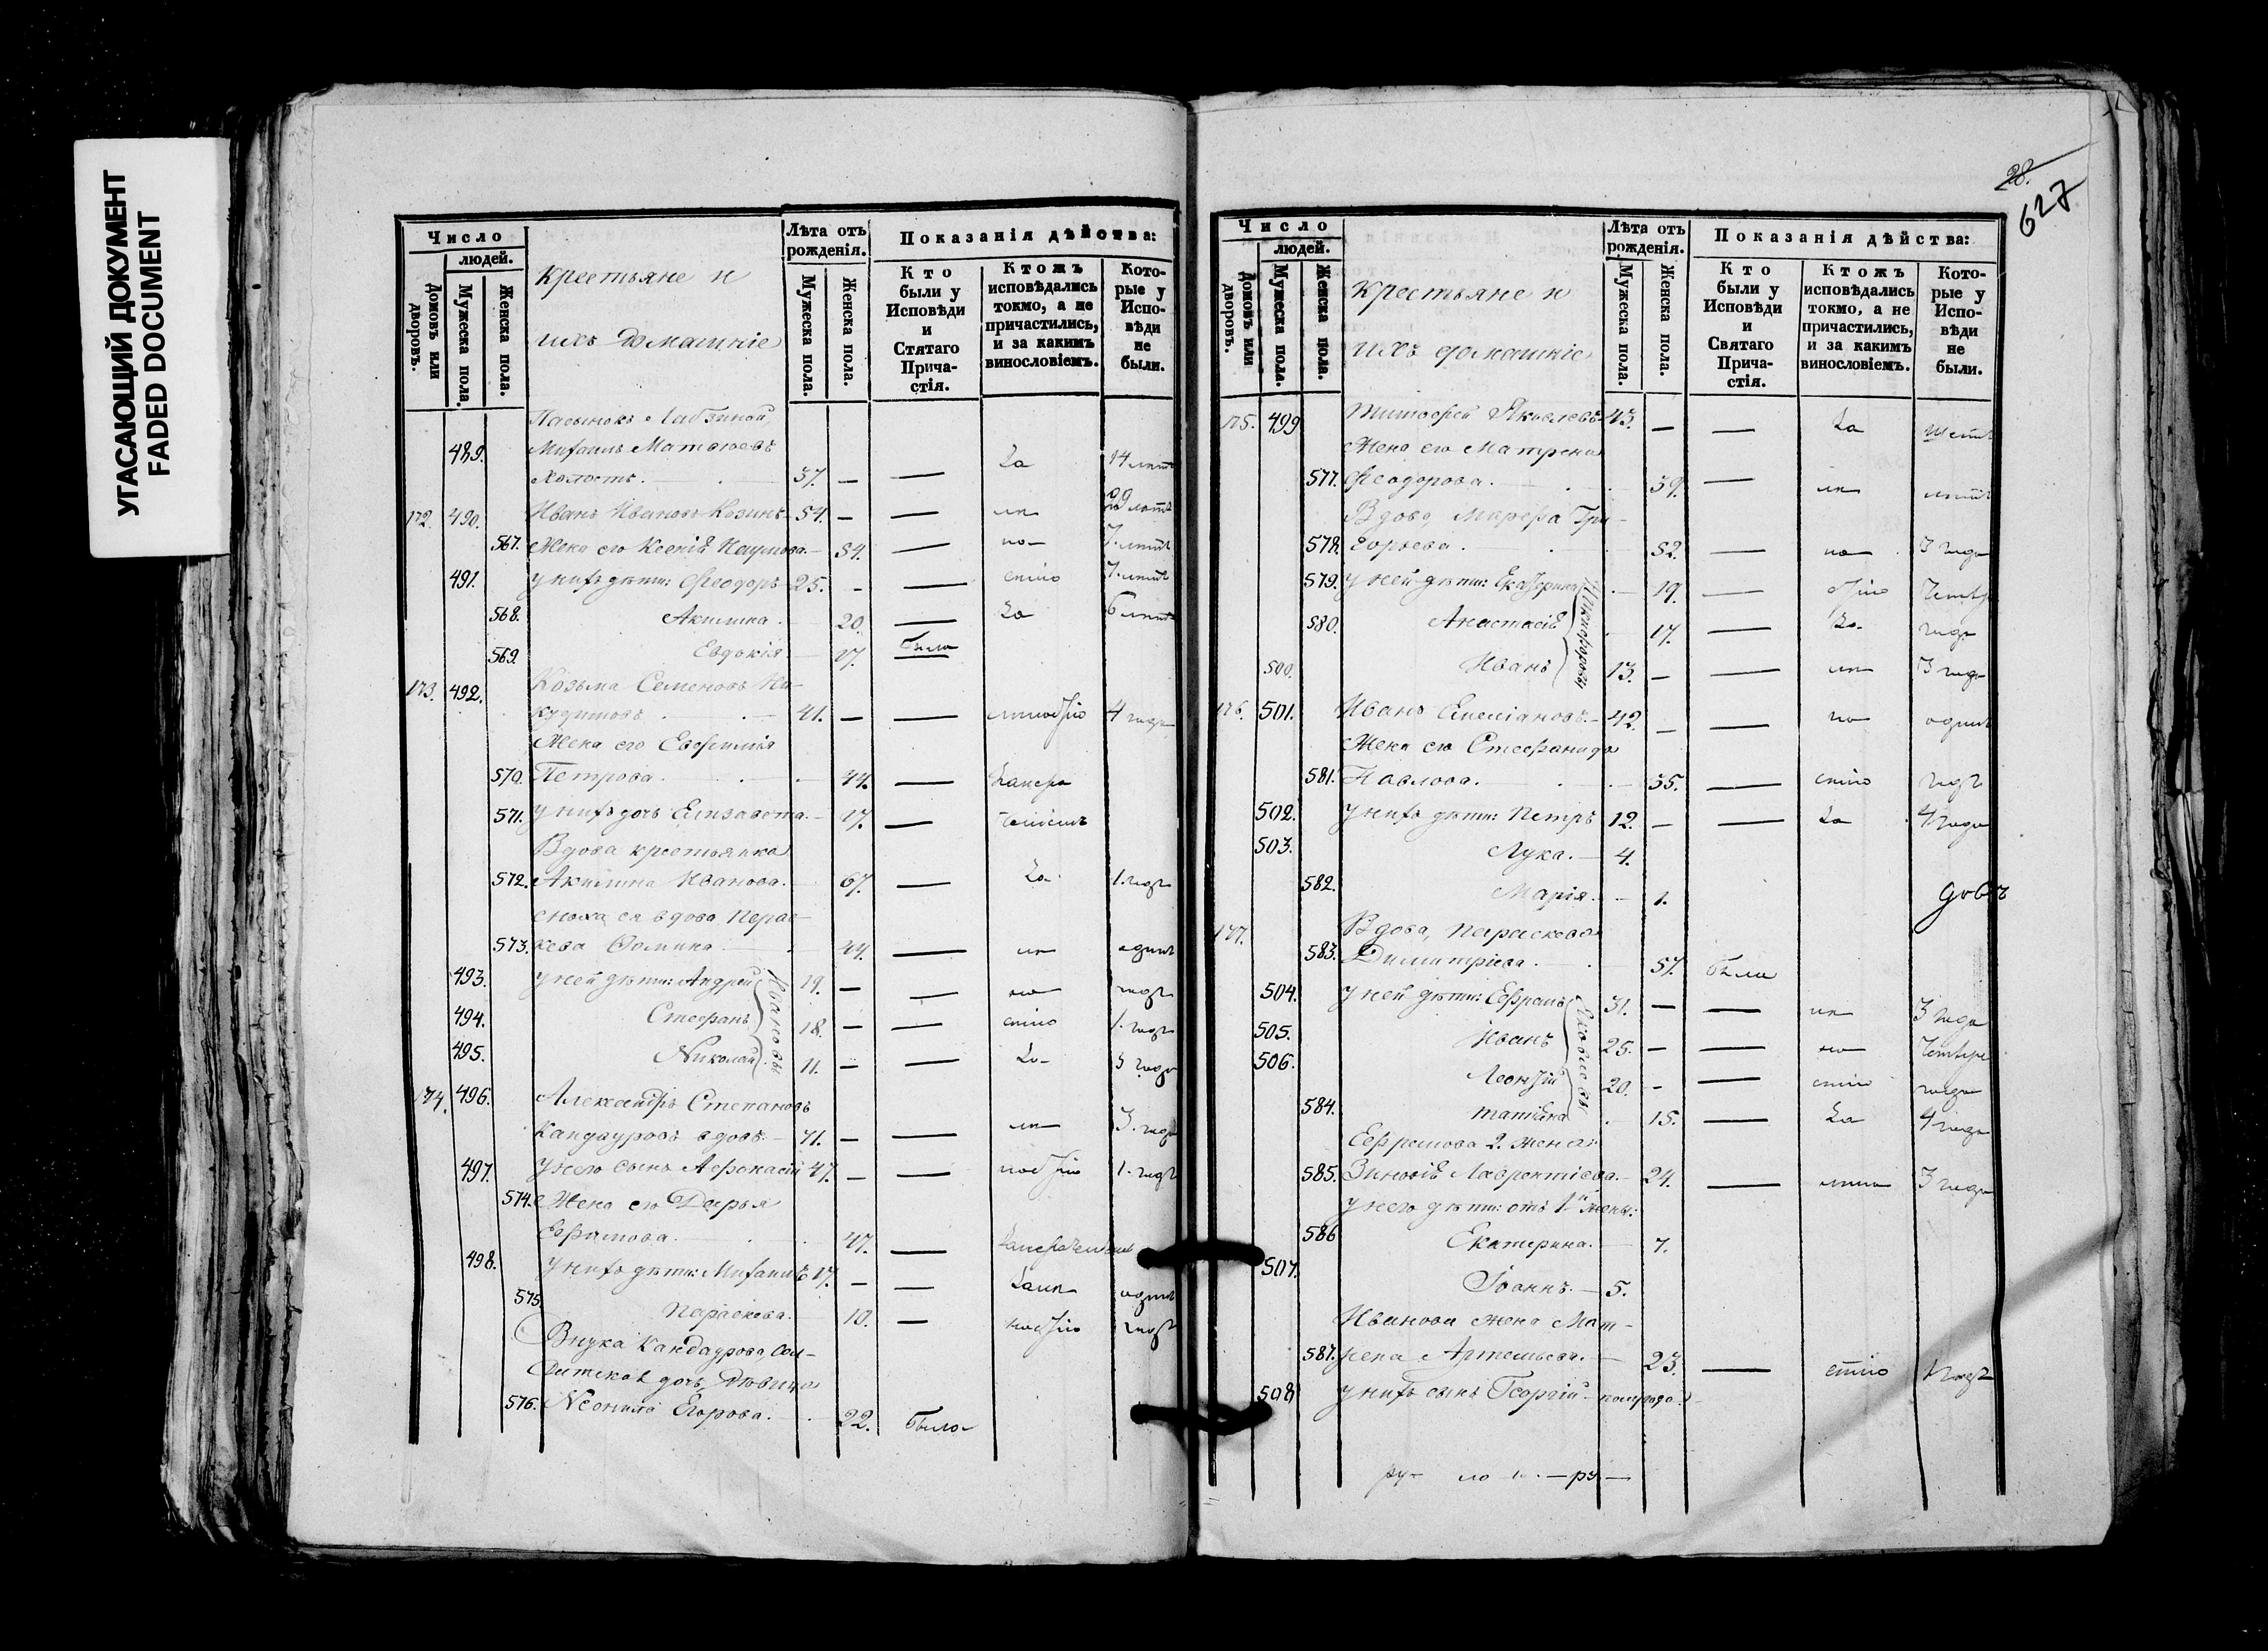 УГАСАЮЩИЙ ДОКУМЕНТ
FADED DOCUMENT
Число
людей.
Домовъ или дворовъ.
Мужеска пола.
Женска пола.
Крестьяне и
ихъ домашніе
Лѣта отъ рожденія.
Мужеска пола.
Женска пола.
Показанія дѣйства:
Кто были у Исповѣди и Стятаго Прича-стія.
Ктожъ исповѣдались токмо, а не причастились, и за какимъ винословіемъ.
Кото-рые у Испо-вѣди не были.
Пасынокъ
489. Михаилъ Матвѣевъ За 14 лѣтъ
Холостъ. 37. — —
172. 490. Иванъ Ивановъ Козинъ 54. — — не лѣтъ
567. Жена его Ксенія Наумова. 54. — по 7. лѣтъ
491. у нихъ дѣти: Ѳеодоръ 25. — — стію 7. лѣтъ
568. Акилина. 20. — За 6 лѣтъ
569. Евдокія. 17. была
173. 492. Козьма Семеновъ Ни-
кудимовъ. 41. — — 4 года
Жена его Евфимія
570. Петрова. 44. —
571. у нихъ дочь Елизавета. 17. —
Вдова крестьянка
572. Акилина Иванова. 67. — За 1. годъ
сноха ея вдова Парас-
573. кева Ѳомина 44. — не одинъ
493. у ней дѣти: Андрей 19. — — по годъ
494. Стефанъ 18. — — стію 1. годъ
495. Николай 11. — — За 3 года
Ивановы
174. 496. Александръ Степановъ
Кандауровъ вдовъ. 71. — — не 3. года
497. у него сынъ Аѳонасій 47. — — 1. годъ
574. Жена его Дарья
Ефимова. 47. —
498. у нихъ дѣти: Михаилъ 17. — — одинъ
575. Параскева. 10. — годъ
Внука Кандаурова, Сол-
датская дочь, дѣвица
576. Неонила Егорова. 22. была
28.
627
Число
людей.
Домовъ или дворовъ.
Мужеска пола.
Женска пола.
Крестьяне и
ихъ домашніе
Лѣта отъ рожденія.
Мужеска пола.
Женска пола.
Показанія дѣйства:
Кто были у Исповѣди и Святаго Прича-стія.
Ктожъ исповѣдались токмо, а не причастились, и за какимъ винословіемъ.
Кото-рые у Испо-вѣди не были.
175. 499 Тимофей Яковлевъ 43. — — За шесть
Жена его Матрена
577. Ѳеодорова. 39. — не лѣтъ
Вдова, Марѳа Гри-
578. горьева. 52. — по 3 года
579. у ней дѣти: Екатерина 19. —
580. Анастасія 17. — За года
500. Иванъ 13. — — не 3 года
Никифоровы
176. 501. Иванъ Емеліановъ. 42. — — по одинъ
Жена его Стефанида
581. Павлова. 35. — стію годъ
502. у нихъ дѣти: Петръ 12. — — За 4 года
503. Лука. 4.
582. Марія. 1.
177. Вдова, Параскева
583. Димитріева. 57. была
504. у ней дѣти: Ефремъ 31. — — не 3 года
505. Иванъ 25. — — по
506. Леонтій 20. — — стію года
584. Татіана 15. — За 4 года
Яковлевы
Ефремова 2. жена:
585. Зиновія Лаврентіева. 24. — 3 года
у него дѣти: отъ 1й жены:
586 Екатерина. 7.
507. Іоаннъ. 5.
Иванова жена Мат-
587. рена Артемьева. 23. — стію 1 годъ
508 у нихъ сынъ Георгій полугода